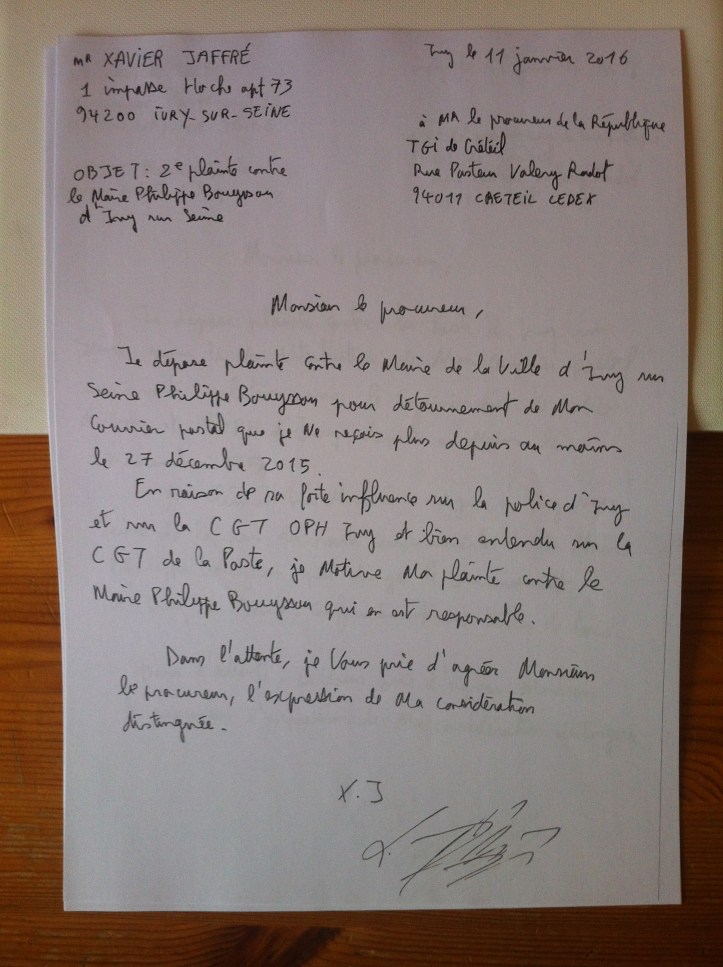 MR XAVIER JAFFRÉ
1 impasse Hoche apt 73
94200 IVRY-SUR-SEINE
Ivry le 11 janvier 2016
à MR le procureur de la République
TGi de Créteil
Rue Pasteur Valery Radot
94011 CRETEIL CEDEX
OBJET: 2e plainte contre
le Maire Philippe Bouyssou
d'Ivry sur Seine
Monsieur le procureur,
Je dépose plainte contre le Maire de la Ville d'Ivry sur
Seine Philippe Bouyssou pour détournement de Mon
Courrier postal que je Ne reçois plus depuis au moins
le 27 décembre 2015.
En raison de sa forte influence sur la police d'Ivry
et sur la CGT OPH Ivry et bien entendu sur la
CGT de la Poste, je Motive Ma plainte contre le
Maire Philippe Bouyssou qui en est responsable.
Dans l'attente, je Vous prie d'agréer Monsieur
le procureur, l'expression de Ma considération
distinguée.
X.J